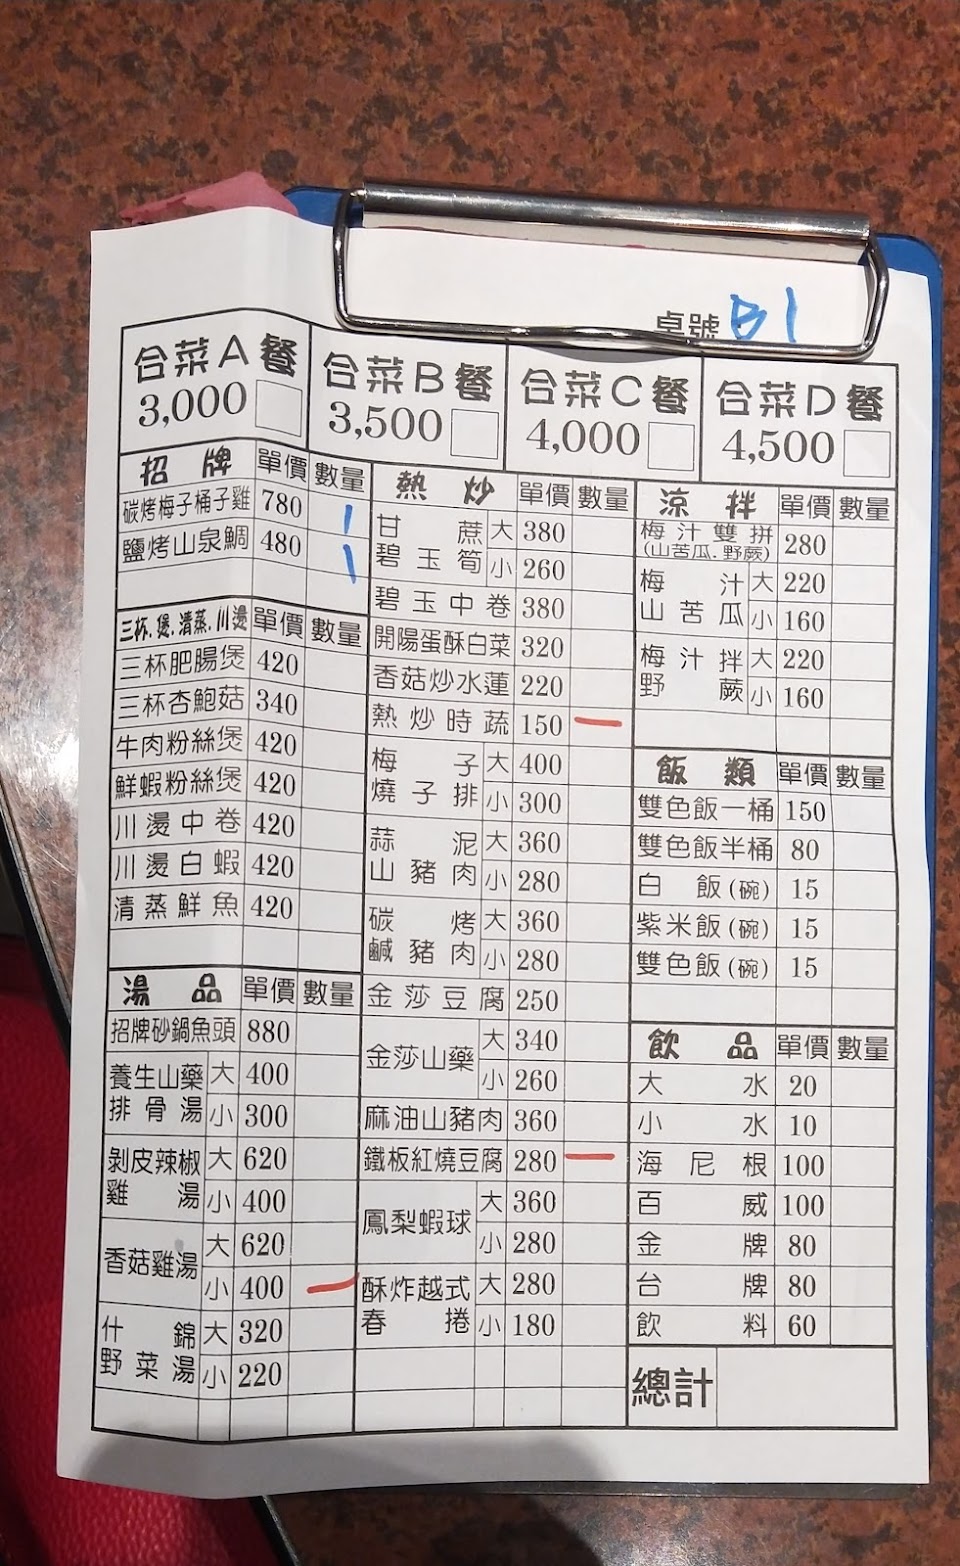 桌號 B1
合菜A餐 3,000
合菜B餐 3,500
合菜C餐 4,000
合菜D餐 4,500
招牌 單價 數量
碳烤梅子桶子雞 780 1
鹽烤山泉鯛 480 1
三杯.煲.清蒸.川燙 單價 數量
三杯肥腸煲 420
三杯杏鮑菇 340
牛肉粉絲煲 420
鮮蝦粉絲煲 420
川燙中卷 420
川燙白蝦 420
清蒸鮮魚 420
湯品 單價 數量
招牌砂鍋魚頭 880
養生山藥排骨湯 大 400
小 300
剝皮辣椒雞湯 大 620
小 400
香菇雞湯 大 620
小 400 一
什錦野菜湯 大 320
小 220
熱炒 單價 數量
甘蔗碧玉筍 大 380
小 260
碧玉中卷 380
開陽蛋酥白菜 320
香菇炒水蓮 220
熱炒時蔬 150 一
梅子燒子排 大 400
小 300
蒜泥山豬肉 大 360
小 280
碳烤鹹豬肉 大 360
小 280
金莎豆腐 250
金莎山藥 大 340
小 260
麻油山豬肉 360
鐵板紅燒豆腐 280 一
鳳梨蝦球 大 360
小 280
酥炸越式春捲 大 280
小 180
涼拌 單價 數量
梅汁雙拼 280
(山苦瓜.野蕨)
梅汁山苦瓜 大 220
小 160
梅汁拌野蕨 大 220
小 160
飯類 單價 數量
雙色飯一桶 150
雙色飯半桶 80
白飯(碗) 15
紫米飯(碗) 15
雙色飯(碗) 15
飲品 單價 數量
大水 20
小水 10
海尼根 100
百威 100
金牌 80
台牌 80
飲料 60
總計